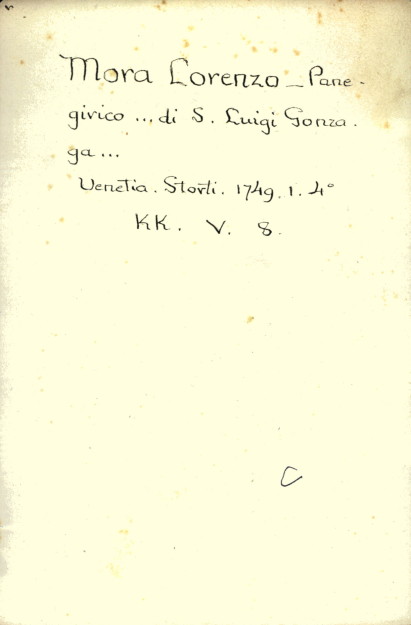 Mora Lorenzo _ Pane-
girico ... di S. Luigi Gonza-
ga ...
Venetia. Storti. 1749. 1. 4°
KK. V. 8.
C